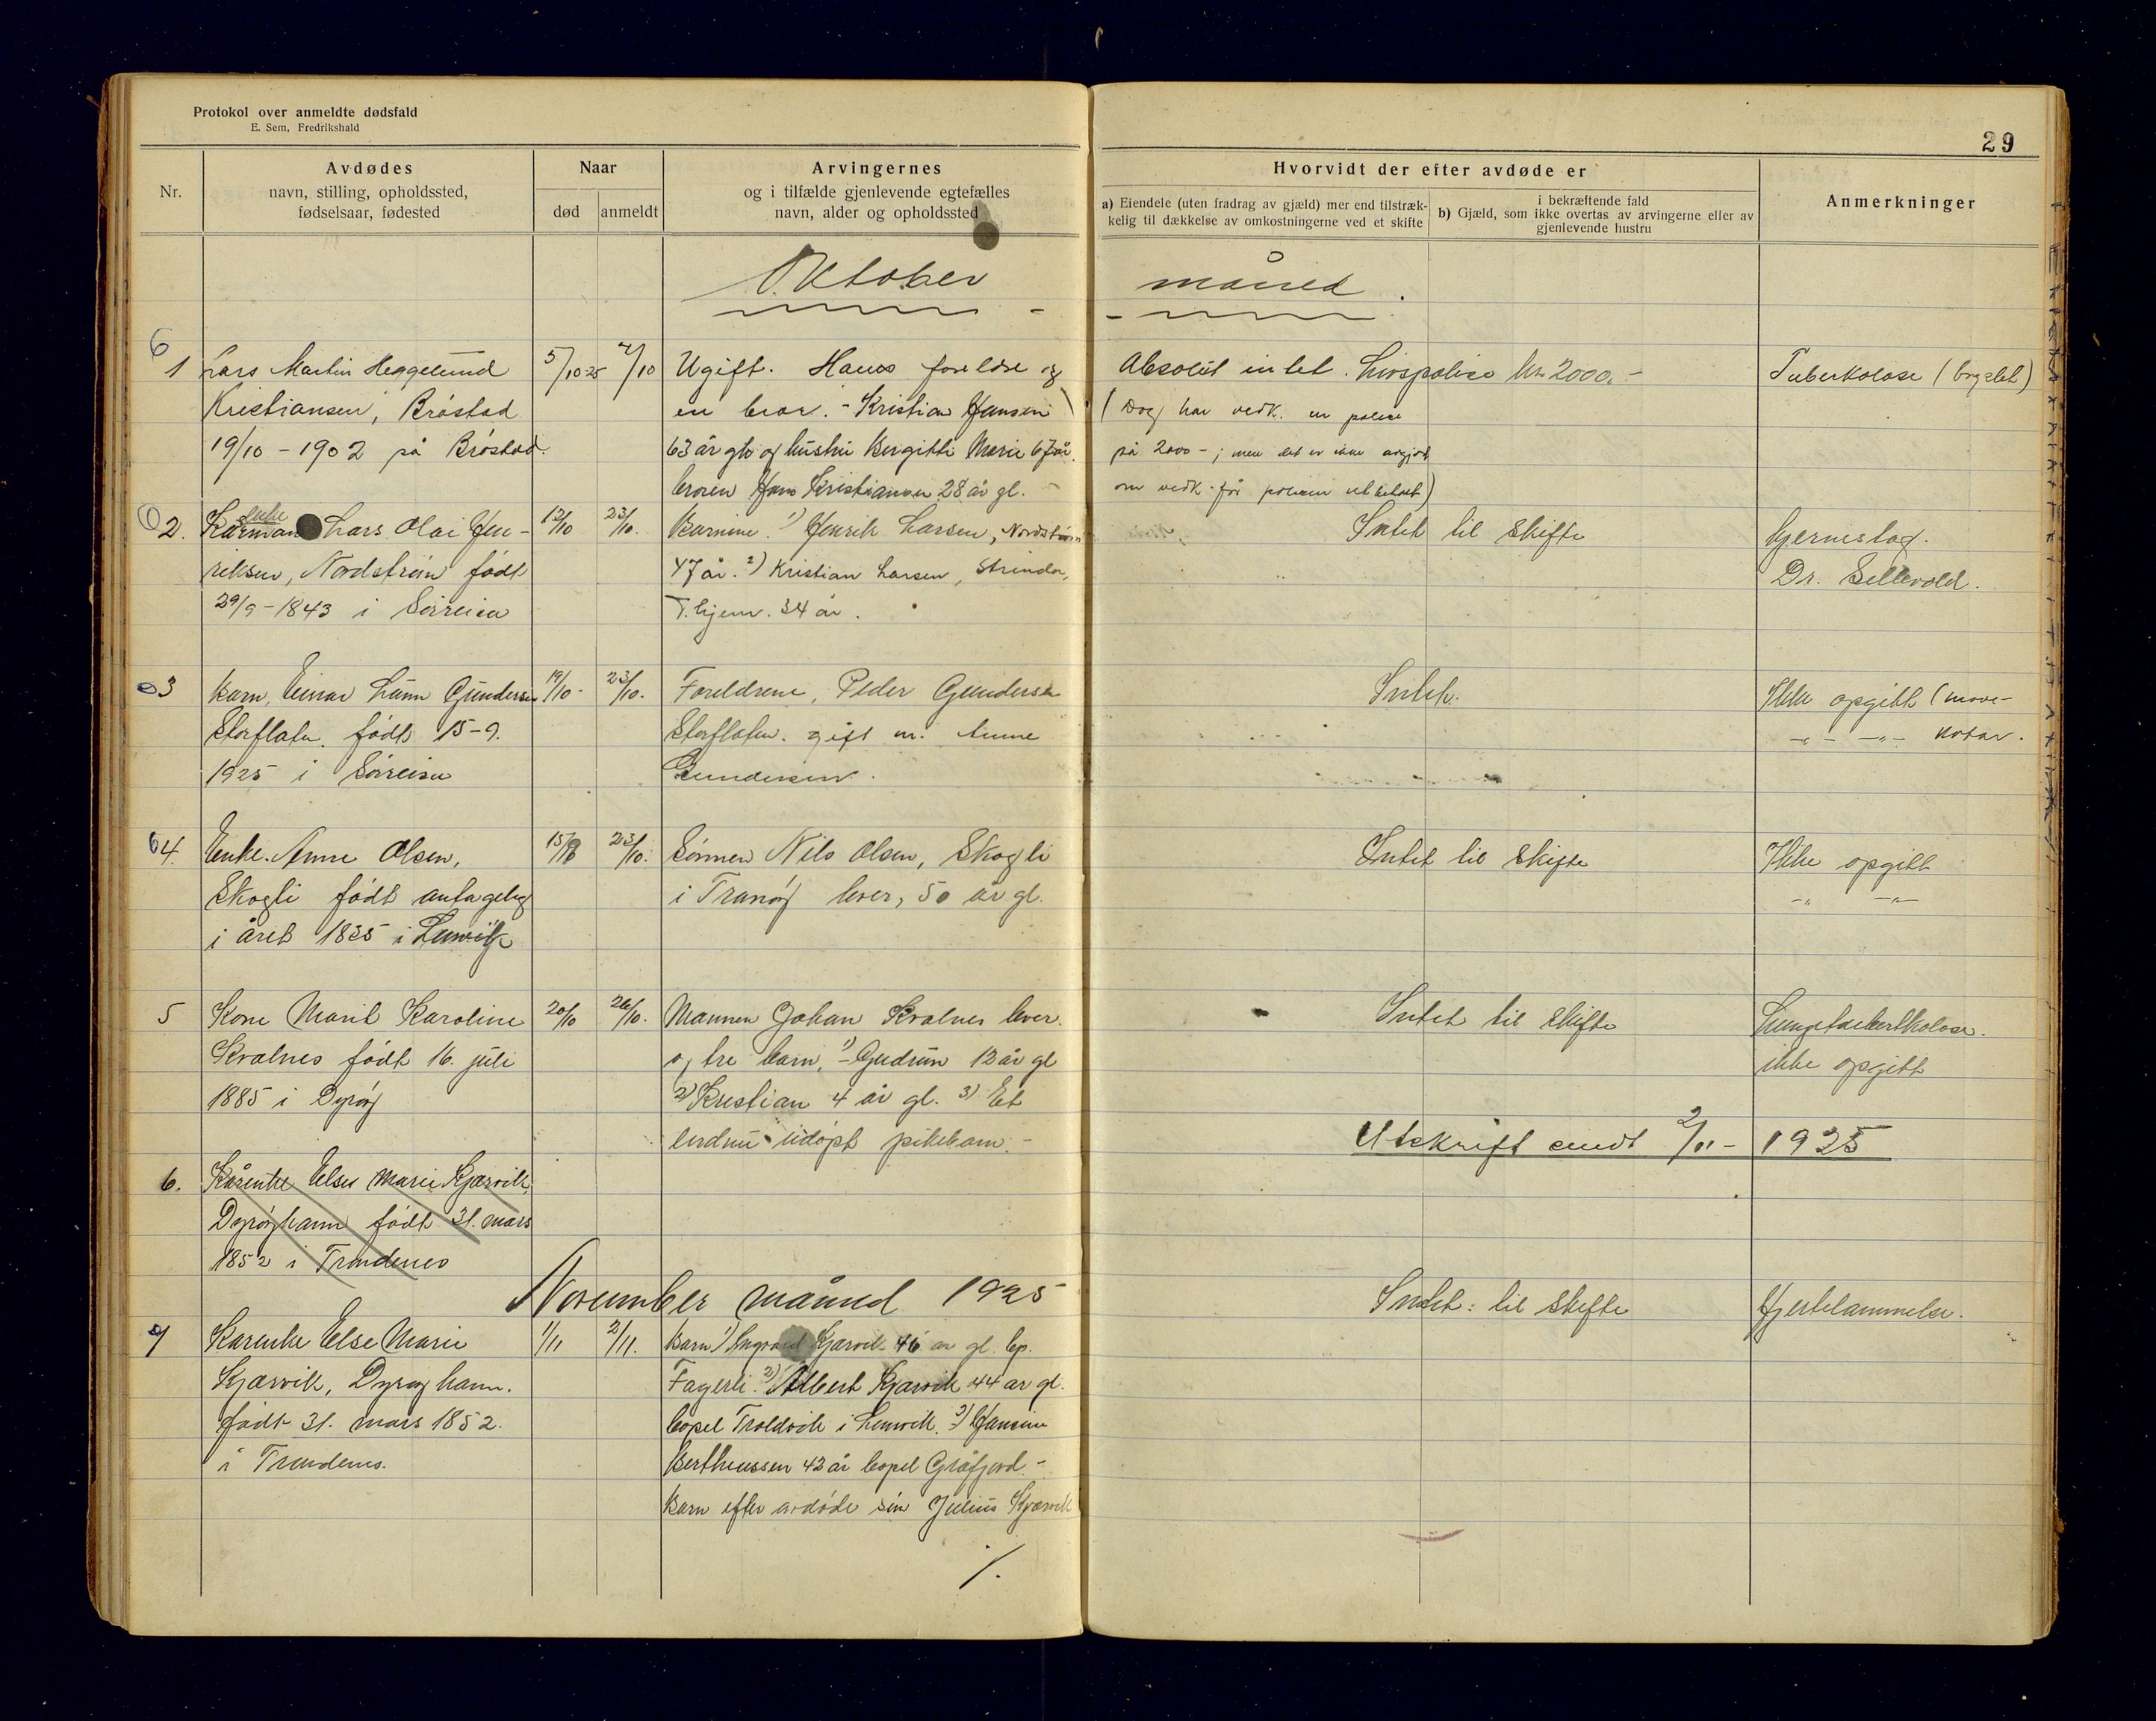 Protokol over anmeldte dødsfald
E. Sem, Fredrikshald
29
Nr.
Avdødes
navn, stilling, opholdssted,
fødselsaar, fødested
Naar
død
anmeldt
Arvingernes
og i tilfælde gjenlevende egtefælles
navn, alder og opholdssted
Hvorvidt der efter avdøde er
a) Eiendele (uten fradrag av gjæld) mer end tilstræk-
kelig til dækkelse av omkostningerne ved et skifte
i bekræftende fald
b) Gjæld, som ikke overtas av arvingerne eller av
gjenlevende hustru
Anmerkninger
Oktober måned.
1 Lars Martin Heggelund
Kristiansen, Bröstad
19/10 - 1902 på Bröstad.
5/10 25
7/10
Ugift. Hans foreldre og
en bror. - Kristian Hansen
63 år gl. og hustru Bergitte Marie 67 år.
broren Hans Kristiansen 28 år gl.
Absolut intet. Livspolice kr 2000.-
(Dog har vedk. en police
på 2000 - ; men det er ikke avgjort
om vedk. får policen utbetalt)
Tuberkolose (brystet)
2. Kårmann Lars Olai Hen-
riksen, Nordström født
29/9 - 1843 i Sörreisa
12/10
23/10.
Barnene. 1) Henrik Larsen, Nordström
47 år. 2) Kristian Larsen, Strinda,
T.hjem. 34 år.
Intet til skifte
Hjerneslag.
Dr. Sellevold.
3 Barn, Einar Lunn Gundersen
Storflaten. født 15-9.
1925 i Sörreisa
19/10 -
23/10.
Foreldrene, Peder Gundersen
Storflaten. gift m. Anne
Gundersen.
Intet.
Ikke opgitt (mave-
-"- -"- katar.
4. Enke. Anne Olsen,
Skogli født antagelig
i året 1835 i Lenvik
15/10
23/10.
Sönnen Nils Olsen, Skogli
i Tranöy lever, 50 år gl.
Intet til skifte
Ikke opgitt
-" -"-
5 Kone Marit Karoline
Kvalnes født 16. juli
1885 i Dyröy
20/10
26/10.
Mannen Johan Kvalnes lever.
og tre barn, 1) Gudrun 12 år gl
2) Kristian 4 år gl. 3) Et
endnu udöpt pikebarn. -
Intet til skifte
Lungetuberkolose.
ikke opgitt
Utskrift sendt 2/11 - 1925
6. Kårenke Else Marie Kjærvik,
Dyröyhamn født 31. mars
1852 i Trondenes
November måned 1925
7 Karenke Else Marie
Kjærvik, Dyröyhamn.
født 31. mars 1852.
i Trondenes.
1/11
2/11.
Barn 1) Ingvard Kjærvik 46 år gl. bp.
Fagerli. 2) Albert Kjærvik 44 år gl.
bopel Troldvik i Lenvik. 3) Hansine
Bertheussen 42 år bopel Gråfjord. -
Barn efter avdöde sön Julius Kjærvik
Intet: til skifte
Hjertelammelse.